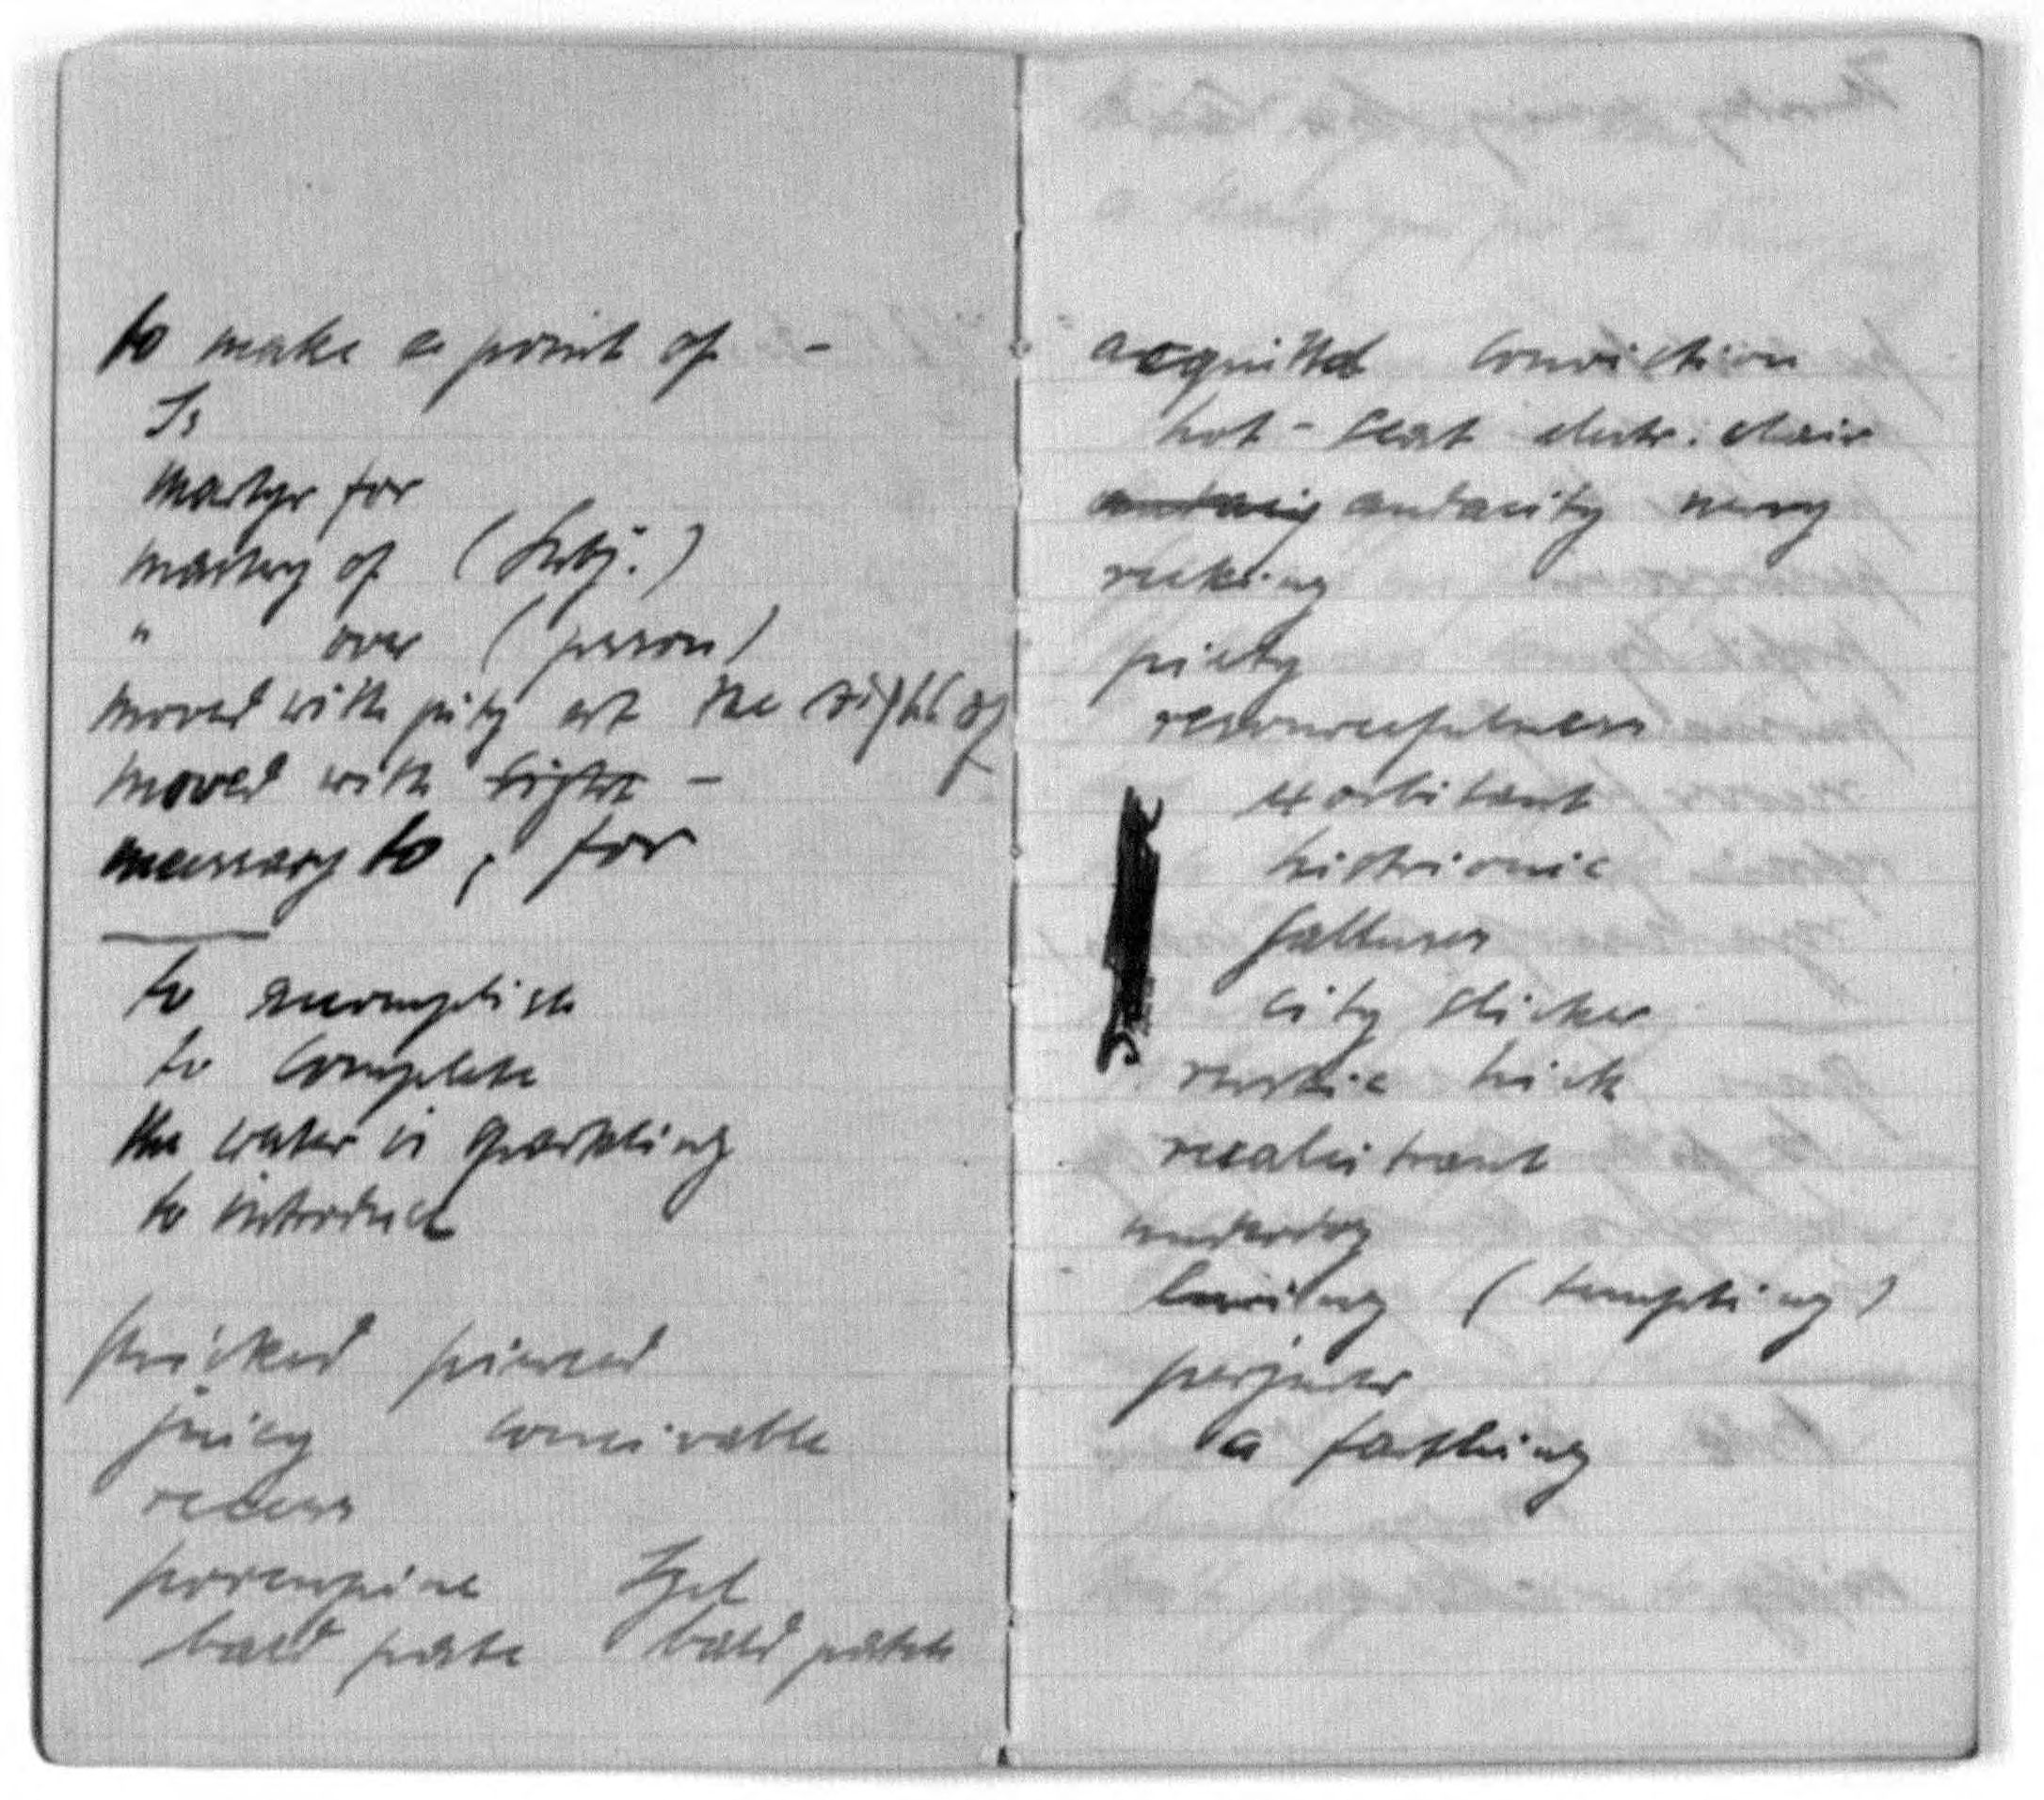 to make a point of -
Is
martyr for
mastery of (Subj.)
" over (person)
moved with pity at the sight of
moved with sights -
necessary to, for
to accomplish
to complete
the water is sparkling
to introduce
pricked pierced
juicy conceivable
recess
porcupine Igel
bald pate bald patch
acquitted conviction
hot-seat electr. chair
audacity nervy
reeking
piety
resourcefulness
exorbitant
histrionic
city slicker
rustic hick
recalcitrant
underdog
luring (tempting)
perjurer
a farthing